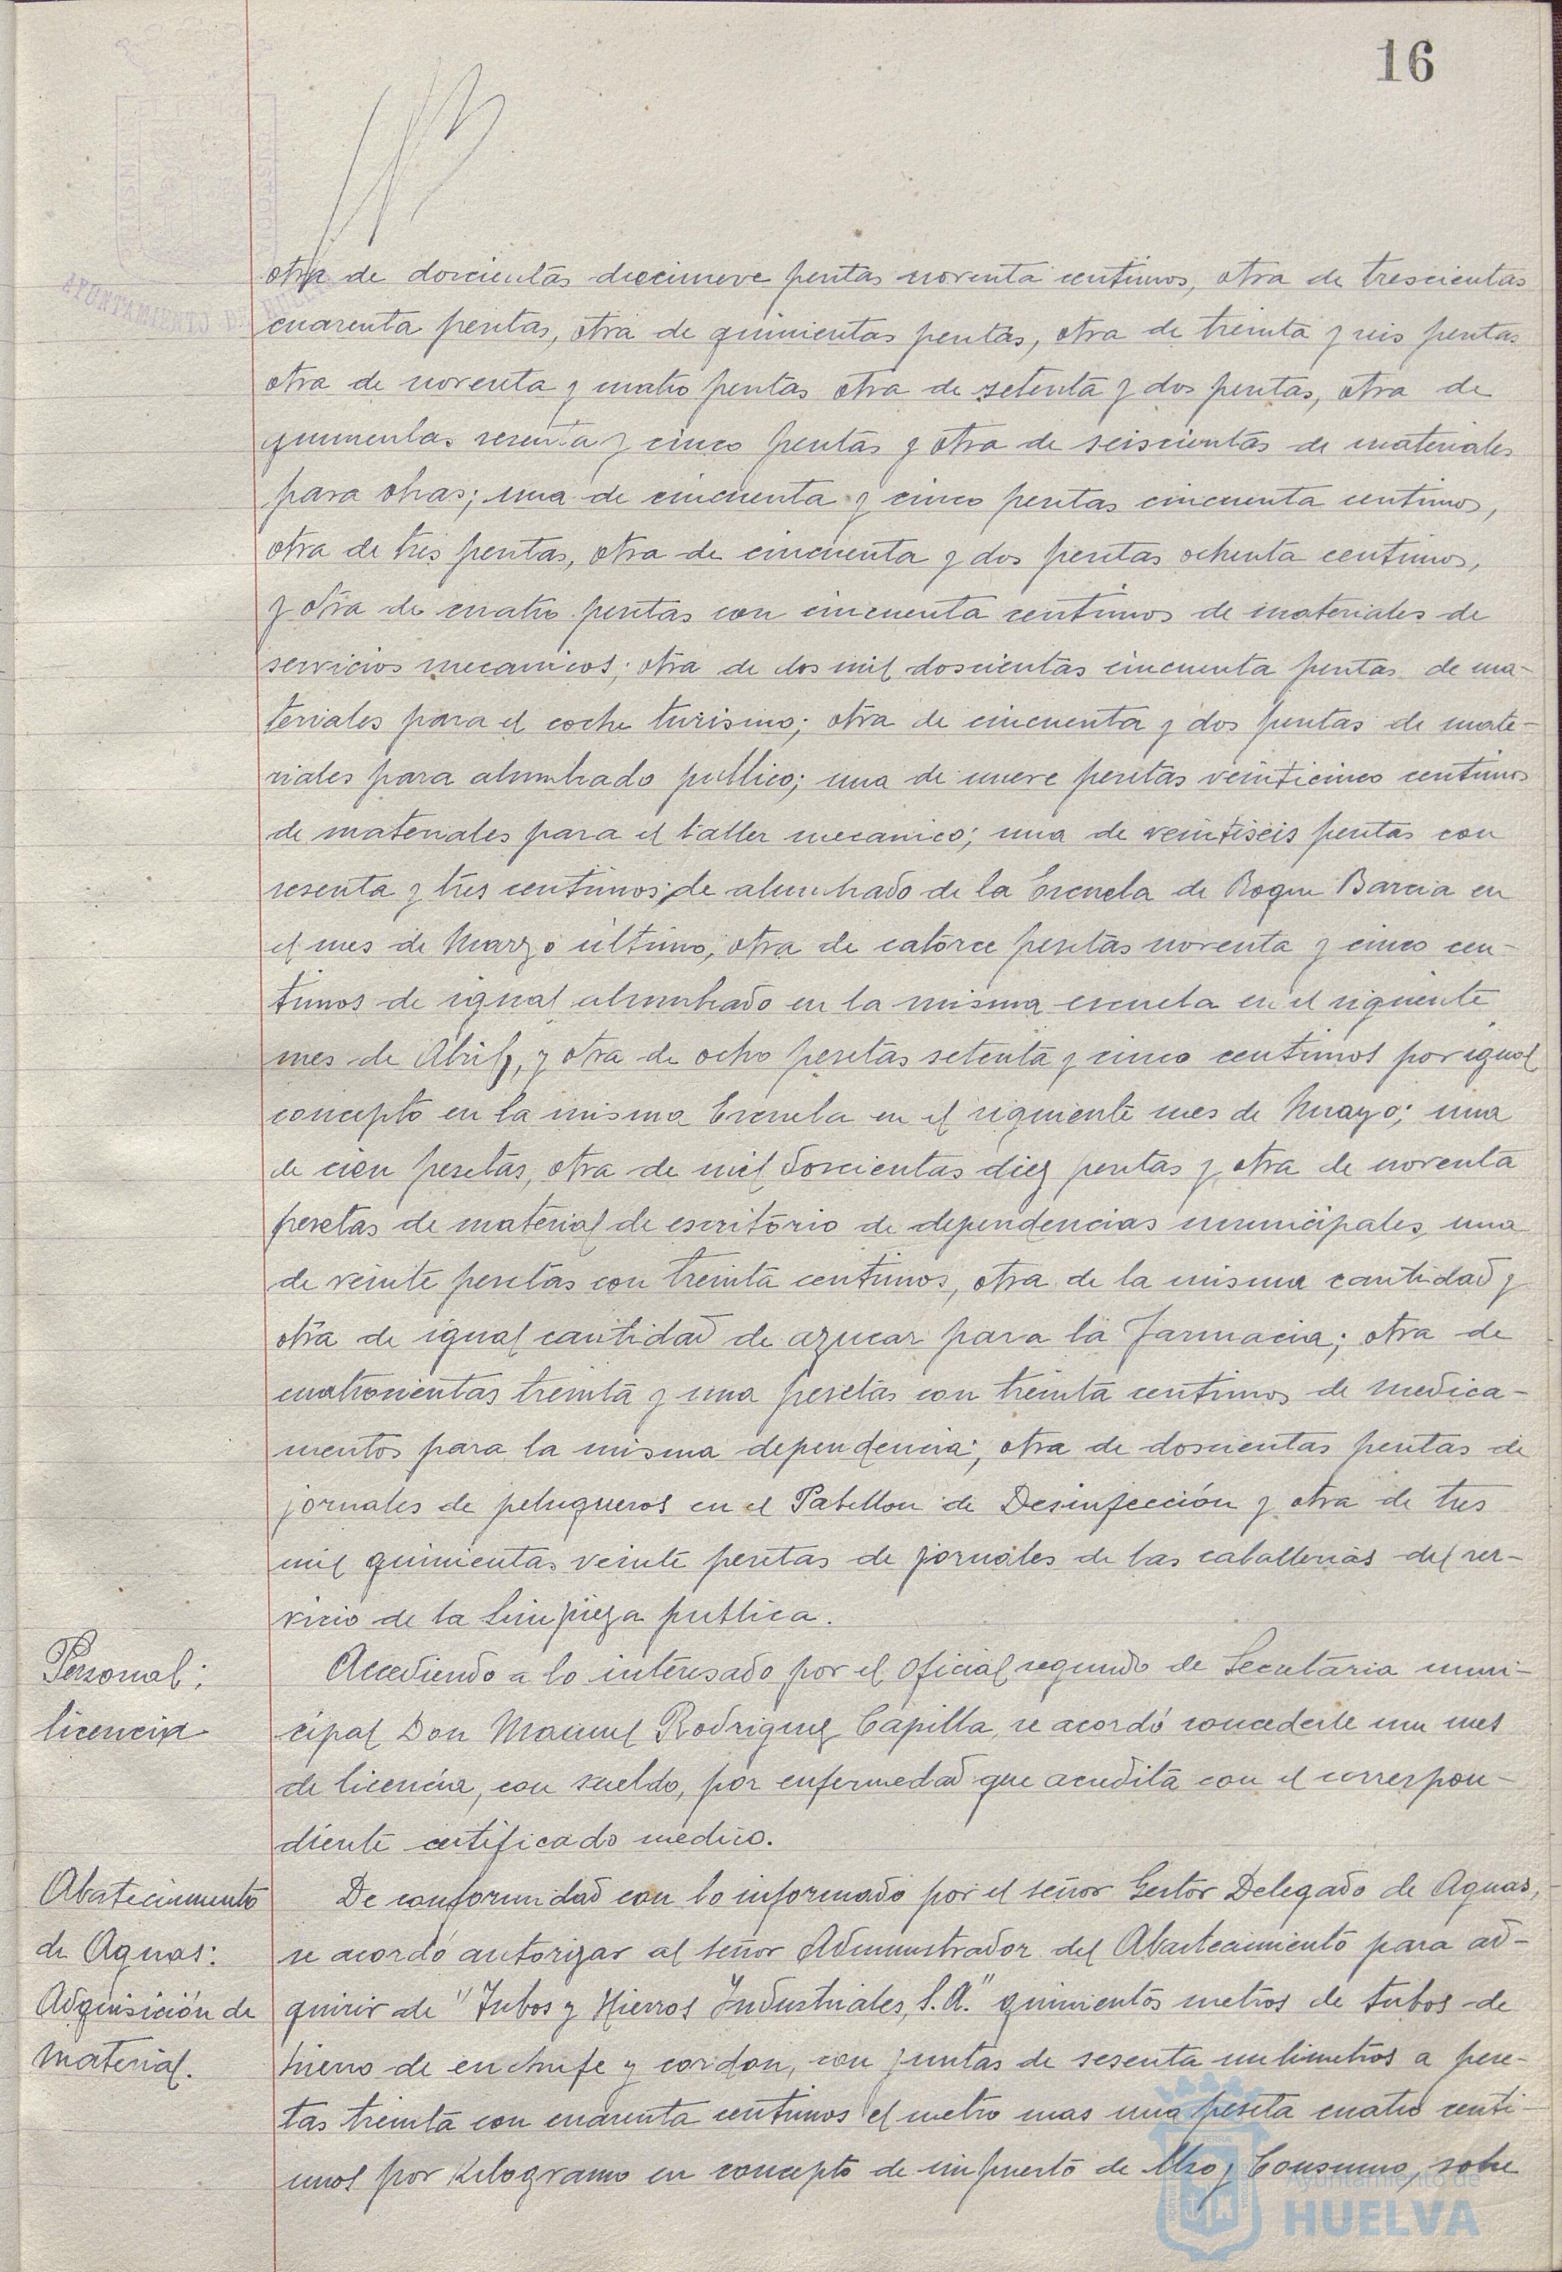 16
AYUNTAMIENTO DE HUELVA
otra de doscientas diecinueve pesetas noventa centimos, otra de trescientas
cuarenta pesetas, otra de quinientas pesetas, otra de treinta y seis pesetas
otra de noventa y cuatro pesetas otra de setenta y dos pesetas, otra de
quinientas sesenta y cinco pesetas y otra de seiscientas de materiales
para obras; una de cincuenta y cinco pesetas cincuenta centimos,
otra de tres pesetas, otra de cincuenta y dos pesetas ochenta centimos,
y otra de cuatro pesetas con cincuenta centimos de materiales de
servicios mecanicos; otra de dos mil doscientas cincuenta pesetas de ma-
teriales para el coche turismo; otra de cincuenta y dos pesetas de mate-
riales para alumbrado publico; una de nueve pesetas veinticinco centimos
de materiales para el taller mecanico; una de veintiseis pesetas con
sesenta y tres centimos, de alumbrado de la Escuela de Roque Barcia en
el mes de Marzo último, otra de catorce pesetas noventa y cinco cen-
timos de igual alumbrado en la misma escuela en el siguiente
mes de Abril, y otra de ocho pesetas setenta y cinco centimos por igual
concepto en la misma Escuela en el siguiente mes de Mayo; una
de cien pesetas, otra de mil doscientas diez pesetas y otra de noventa
pesetas de material de escritorio de dependencias municipales, una
de veinte pesetas con treinta centimos, otra de la misma cantidad y
otra de igual cantidad de azucar para la Farmacia; otra de
cuatrocientas treinta y una pesetas con treinta centimos de medica-
mentos para la misma dependencia; otra de doscientas pesetas de
jornales de peluqueros en el Pabellon de Desinfección y otra de tres
mil quinientas veinte pesetas de jornales de las caballerias del ser-
vicio de la limpieza publica.
Personal:
licencia
Accediendo a lo interesado por el Oficial segundo de Secretaria muni-
cipal Don Manuel Rodriguez Capilla, se acordó concederle un mes
de licencia, con sueldo, por enfermedad que acredita con el correspon-
diente certificado medico.
Abatecimiento
de Aguas:
Adquisición de
material.
De conformidad con lo informado por el señor Gestor Delegado de Aguas,
se acordó autorizar al señor Administrador del Abastecimiento para ad-
quirir de "Tubos y Hierros Industriales, S.A." quinientos metros de tubos de
hierro de enchufe y cordon, con juntas de sesenta milimetros a pese-
tas treinta con cuarenta centimos el metro mas una peseta cuatro centi-
mos por Kilogramo en concepto de impuesto de Uso y Consumo, sobre
Ayuntamiento de
HUELVA